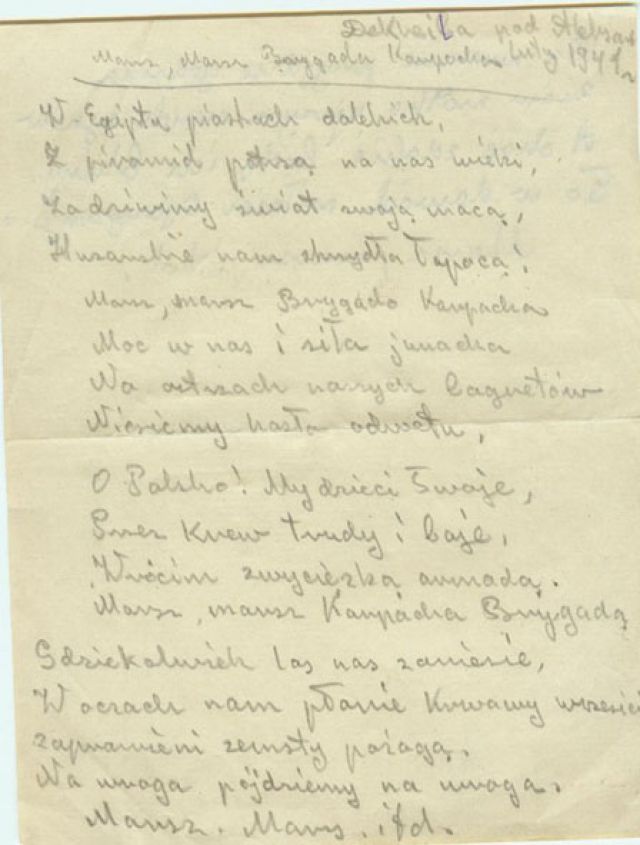 Dekheila pod Aleksan
Marsz, Marsz Brygada Karpacka luty 1941 r.
W Egiptu piaskach dalekich,
Z piramid patrzą na nas wieki,
Zadziwimy świat swoją mocą,
Husarskie nam skrzydła łopocą!
Marsz, marsz Brygado Karpacka
Moc w nas i siła junacka
Na ostrzach naszych bagnetów
Niesiemy hasła odwetu,
O Polsko! My dzieci Twoje,
Przez krew trudy i boje,
Wrócim zwycięzką armadą.
Marsz, marsz Karpacka Brygadą
Gdziekolwiek los nas zaniesie,
W oczach nam płonie Krwawy wrzesie
zaprawieni zemsty pożogą.
Na wroga pójdziemy na wroga.
Marsz. Marsz. itd.